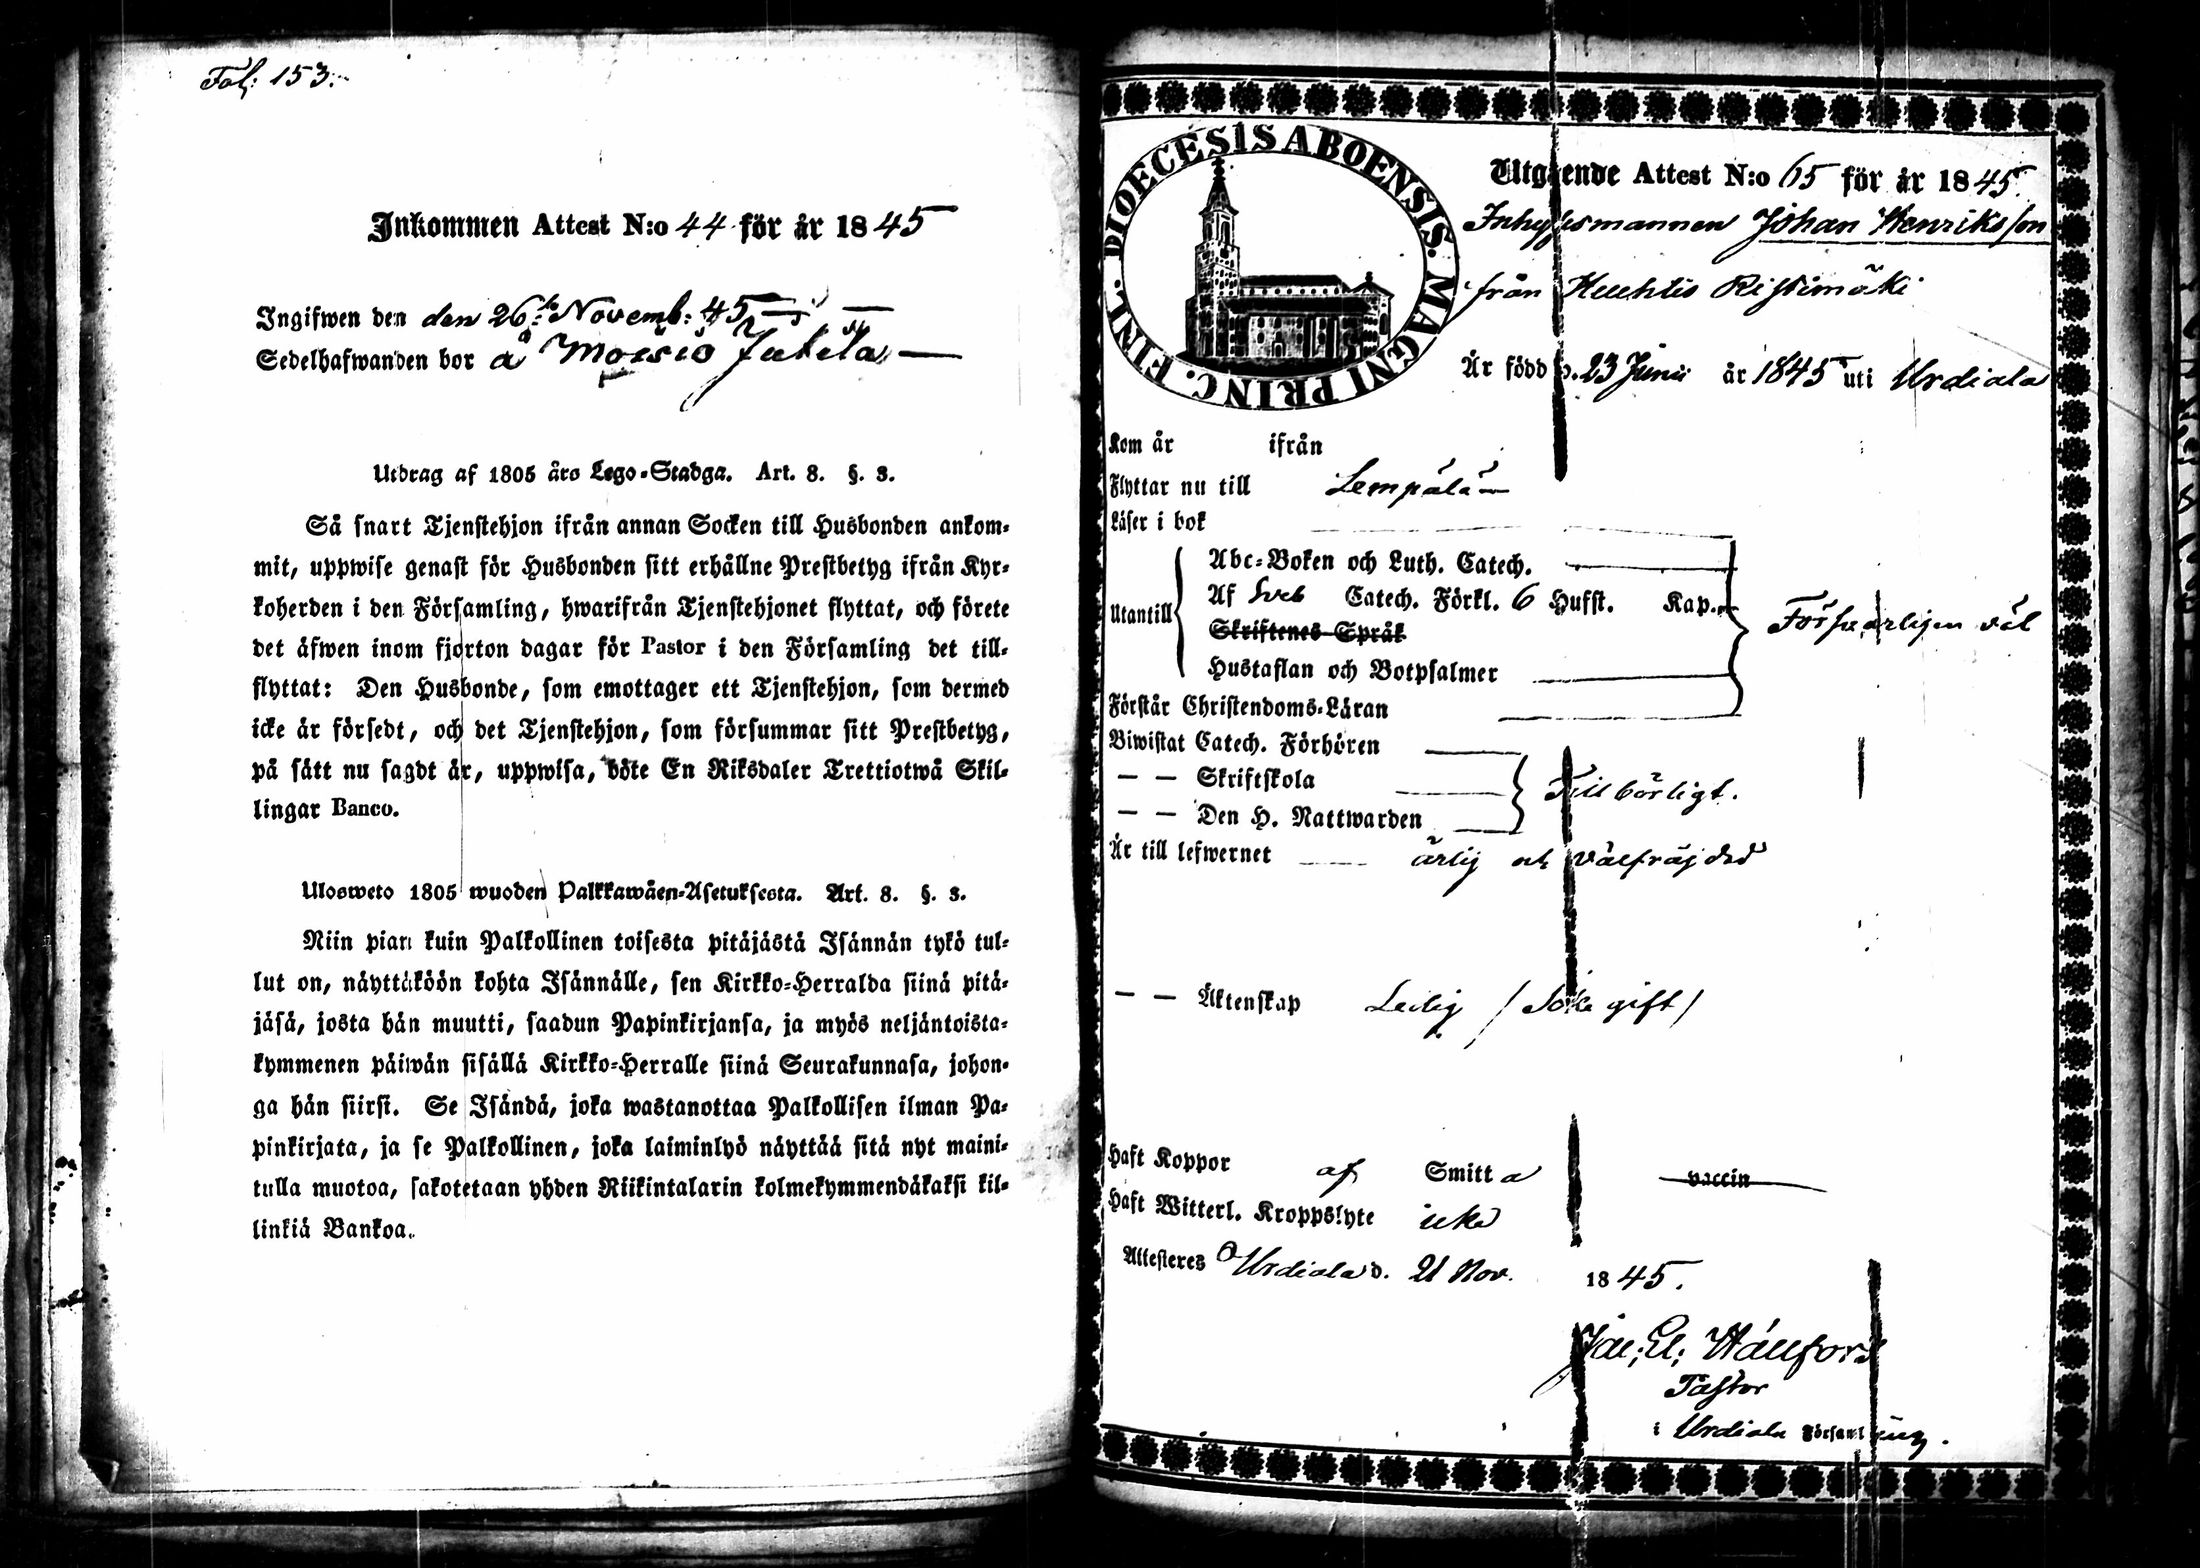 Fol: 153.
Inkommen Attest N:o 44 för år 1845
Ingifwen den den 26te Novemb: 45
Sedelhafwanden bor å Moisio Jutila
Utdrag af 1805 års Lego-Stadga. Art. 8. §. 3.
Så snart Tjenstehjon ifrån annan Socken till Husbonden ankom-
mit, uppwise genast för Husbonden sitt erhållne Prestbetyg ifrån Kyr-
koherden i den Församling, hwarifrån Tjenstehjonet flyttat, och förete
det äfwen inom fjorton dagar för Pastor i den Församling det till-
flyttat: Den Husbonde, som emottager ett Tjenstehjon, som dermed
icke är försedt, och det Tjenstehjon, som försummar sitt Prestbetyg,
på sätt nu sagdt är, uppwisa, böte En Riksdaler Trettiotwå Skil-
lingar Banco.
Ulosweto 1805 wuoden Palkkawäen-Asetuksesta. Art. 8. §. 3.
Niin pian kuin Palkollinen toisesta pitäjästä Isännän tykö tul-
lut on, näyttäköön kohta Isännälle, sen Kirkko-Herralda siinä pitä-
jäsä, josta hän muutti, saadun Papinkirjansa, ja myös neljäntoista-
kymmenen päiwän sisällä Kirkko-Herralle siinä Seurakunnasa, johon-
ga hän siirsi. Se Isändä, joka wastanottaa Palkollisen ilman Pa-
pinkirjata, ja se Palkollinen, joka laiminlyö näyttää sitä nyt maini-
tulla muotoa, sakotetaan yhden Riikintalarin kolmekymmendäkaksi kil-
linkiä Bankoa.
DIOECESIS ABOENSIS. MAGNI PRINC. FINL.
Utgående Attest N:o 65 för år 1845.
Inhysesmannen Johan Henriksson
från Huhtis Ristimäki
Är född d. 23 Junii år 1845 uti Urdiala
Kom år ifrån
Flyttar nu till Lempälä
Läser i bok
Utantill
Abc-Boken och Luth. Catech.
Af Sveb Catech. Förkl. 6 Hufst. Kap.
Skriftenes Språk
Hustaflan och Botpsalmer
Förstår Christendoms-Läran
Försvarligen väl
Biwistat Catech. Förhören
— — Skriftskola
— — Den H. Nattwarden
Tillbörligt.
Är till lefwernet ärlig och välfräjdad
— — Äktenskap Ledig / Icke gift /
Haft Koppor af Smitta vaccin
Haft Witterl. Kroppslyte icke
Attesteres Urdiala d. 21 Nov. 1845.
Pastor
i Urdiala Församling.